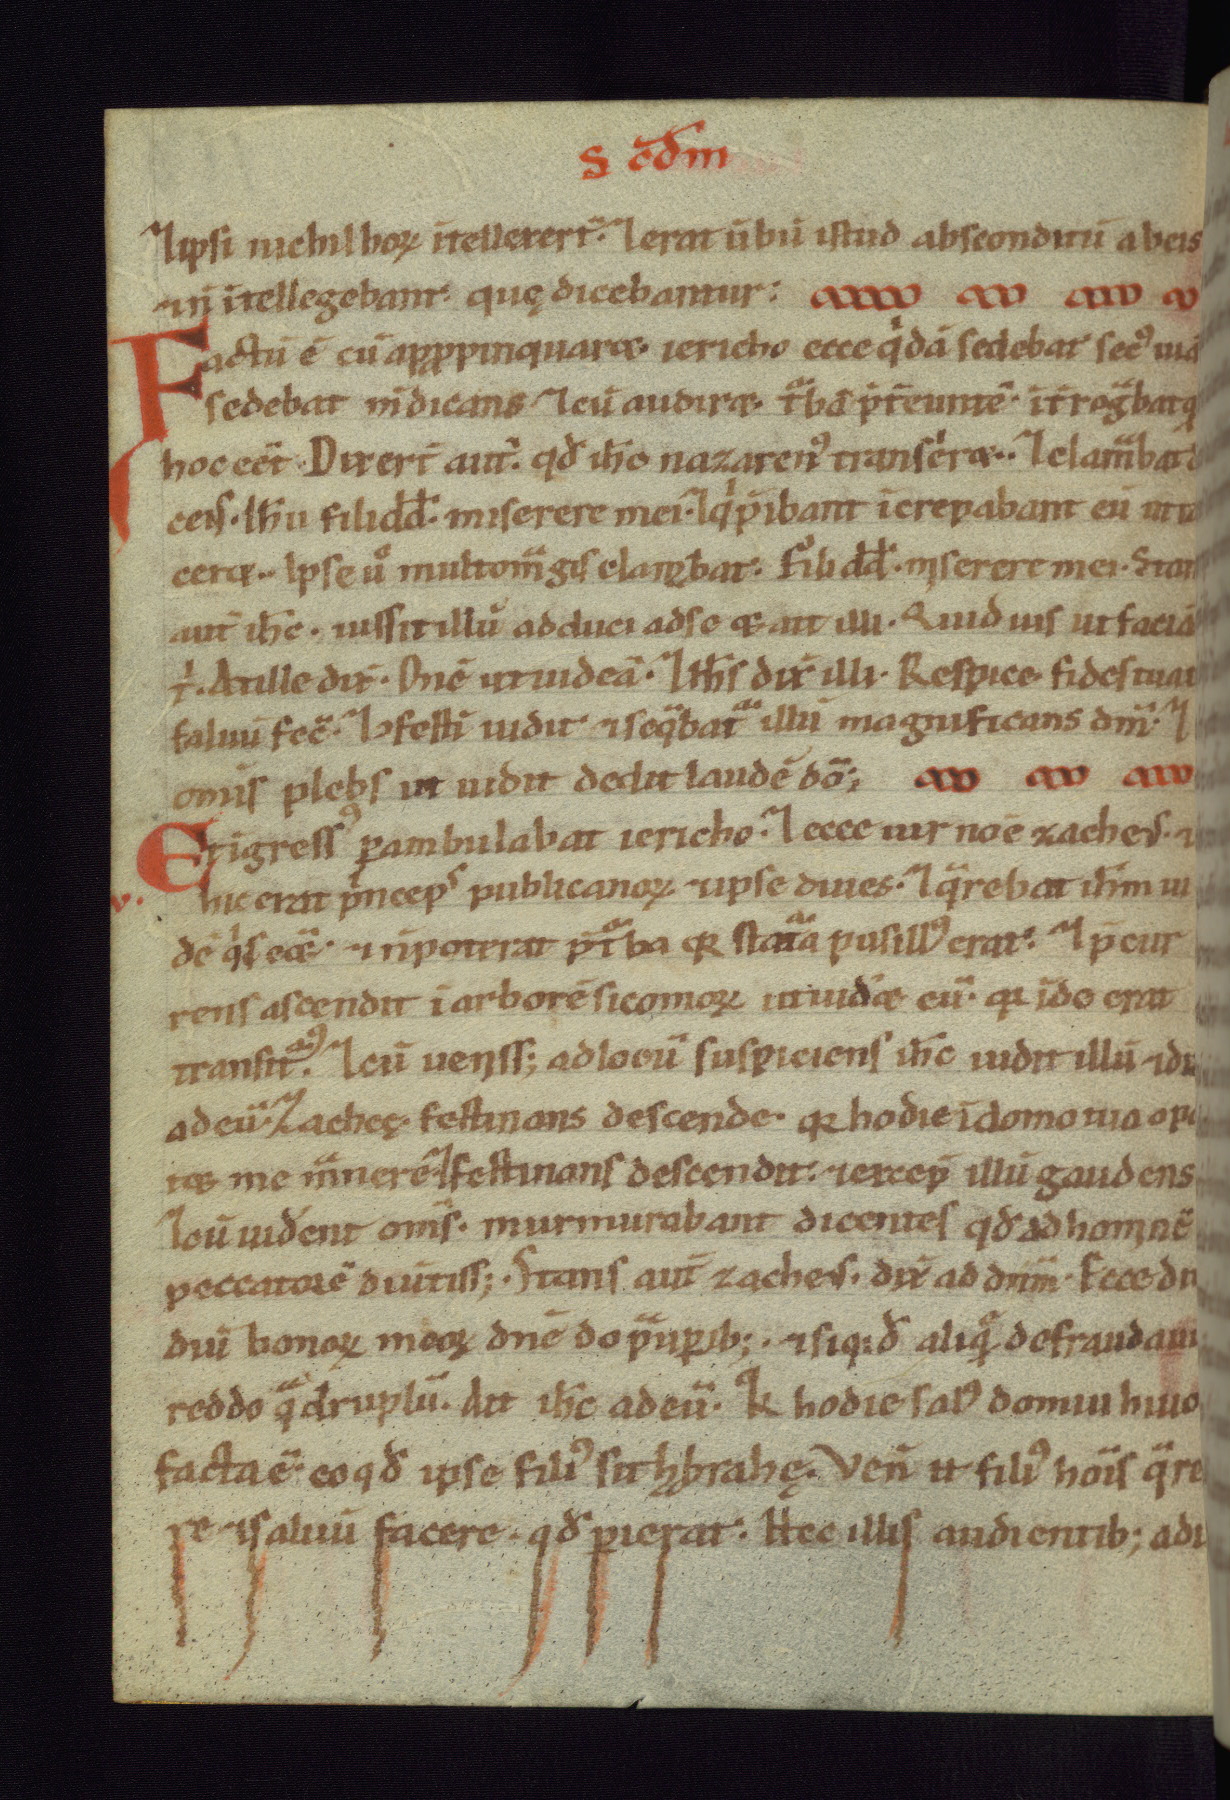 S c̄dm
⁊ ipsi nichil hoꝝ ītellexer̄t. ⁊ erat ūbū istud absconditū ab eis
⁊ n̄ ītellegebant quę dicebantur:
Factū ē cū appropinquar& iericho ecce qͥdā sedebat sec᷒ uiā
sedebat mēdicans ⁊ cū audir& tᷓbā p̄t̄euntē īt̄rogᷓbat q
hoc eēt. Dixer̄t aut̄. qđ ih̄c nazaren᷒ transir&. ⁊ clamᷓbat d
cens. Ih̄u fili dđ. miserere mei. ⁊ qͥ p̄ibant īcrepabant eū ut ta
cer&. Ipse uͦ multo mᷓgis clamᷓbat. Fili dđ. miserere mei. Stans
aut̄ ih̄c. iussit illū adduci ad se & ait illi. Quid uis ut faciā
tͥ. At ille dix̄. Dn̄e ut uideā. ⁊ ih̄s dix̄ illi. Respice fides tua t
saluū fec̄. ⁊ ꝯfestī uidit ⁊ seq̄batᷓ illū magnificans dm̄. ⁊
om̄is plebs ut uidit dedit laudē dō;
Et īgress᷒ ꝑambulabat iericho. ⁊ ecce uir noē zacheus. ⁊
v. hic erat pͥnceps publicanoꝝ ⁊ ipse diues. ⁊ q̄rebat ih̄m ui
dē qͥs eēt ⁊ n̄ poterat p̄ tᷓba qꝛ statᷓa pusill᷒ erat. ⁊ p̄cur
rens ascendit ī arborē sicomoꝝ ut uid& eū. qꝛ īde erat
transit᷒. ⁊ cū ueniss; ad locū suspiciens ih̄c uidit illū ⁊ dix
ad eū. Zachęę festinans descende. qꝛ hodie ī domo tua opo
t& me mᷓnere. ⁊ festinans descendit. ⁊ excep̄ illū gaudens
⁊ cū uider̄ent om̄s. murmurabant dicentes qđ ad hominē
peccatorē diūtiss;. Stans aut̄ zacheus. dix̄ ad dn̄m. Ecce di
diū bonoꝝ meoꝝ dn̄e do pᷓuꝑib;. ⁊ si qͥd aliqͦ defraudaui
reddo qᷓdruplū. Ait ih̄c ad eū. qꝛ hodie sal᷒ domui huic
facta ē. eo qđ ipse fili᷒ sit habrahę. Ven̄ ē fili᷒ hōis q̄re
re ⁊ saluū facere. qđ ꝑierat. Hec illis audientib; adi